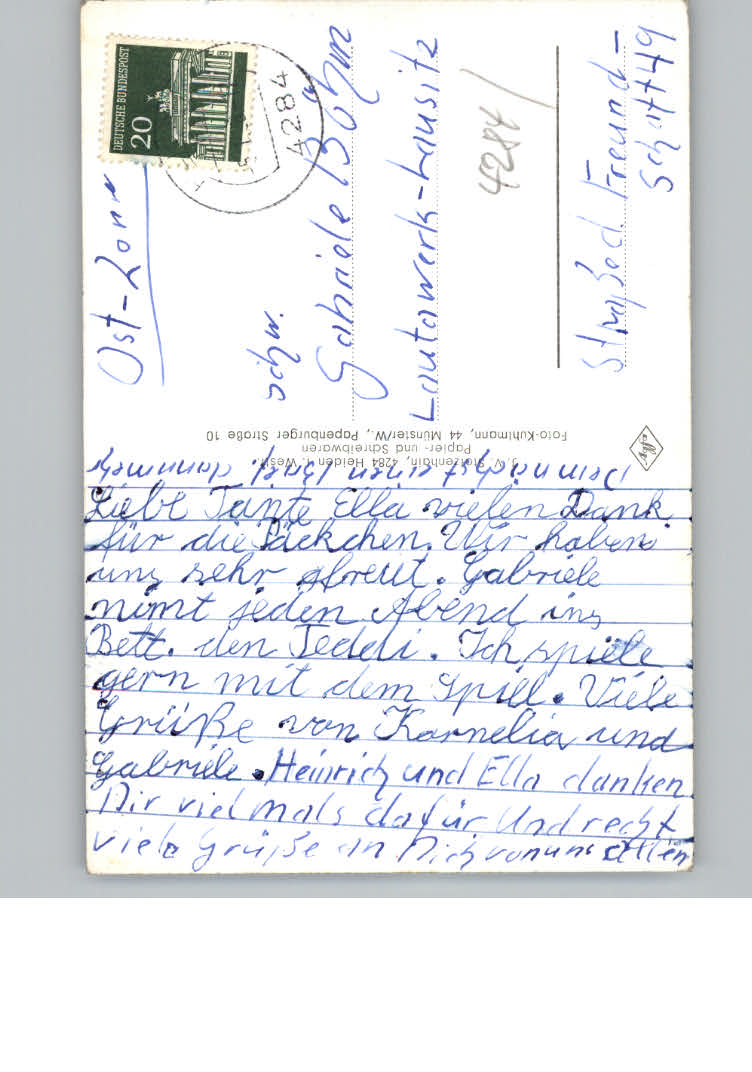 Liebe Tante Ella vielen Dank
für die Päckchen. Wir haben
uns sehr gfreut. Gabriele
nimt jeden Abend ins
Bett. den Teddi. Ich spiele
gern mit dem Spiel. Viele
Grüße von Karnelia und
Gabriele. Heinrich und Ella danken
Dir vielmals dafür Und recht
viele Grüße an Dich von uns allen
Demnächst einen Brief
DEUTSCHE BUNDESPOST
20
4284
Ost-Zone
Schw.
Gabriele Böhm
Lautawerk-Lausitz
4284
Straße d. Freund-
schaft 49
J. V. Stolzenhain, 4284 Heiden i. Westf.
Papier- und Schreibwaren
Foto-Kuhlmann, 44 Münster/W., Papenburger Straße 10